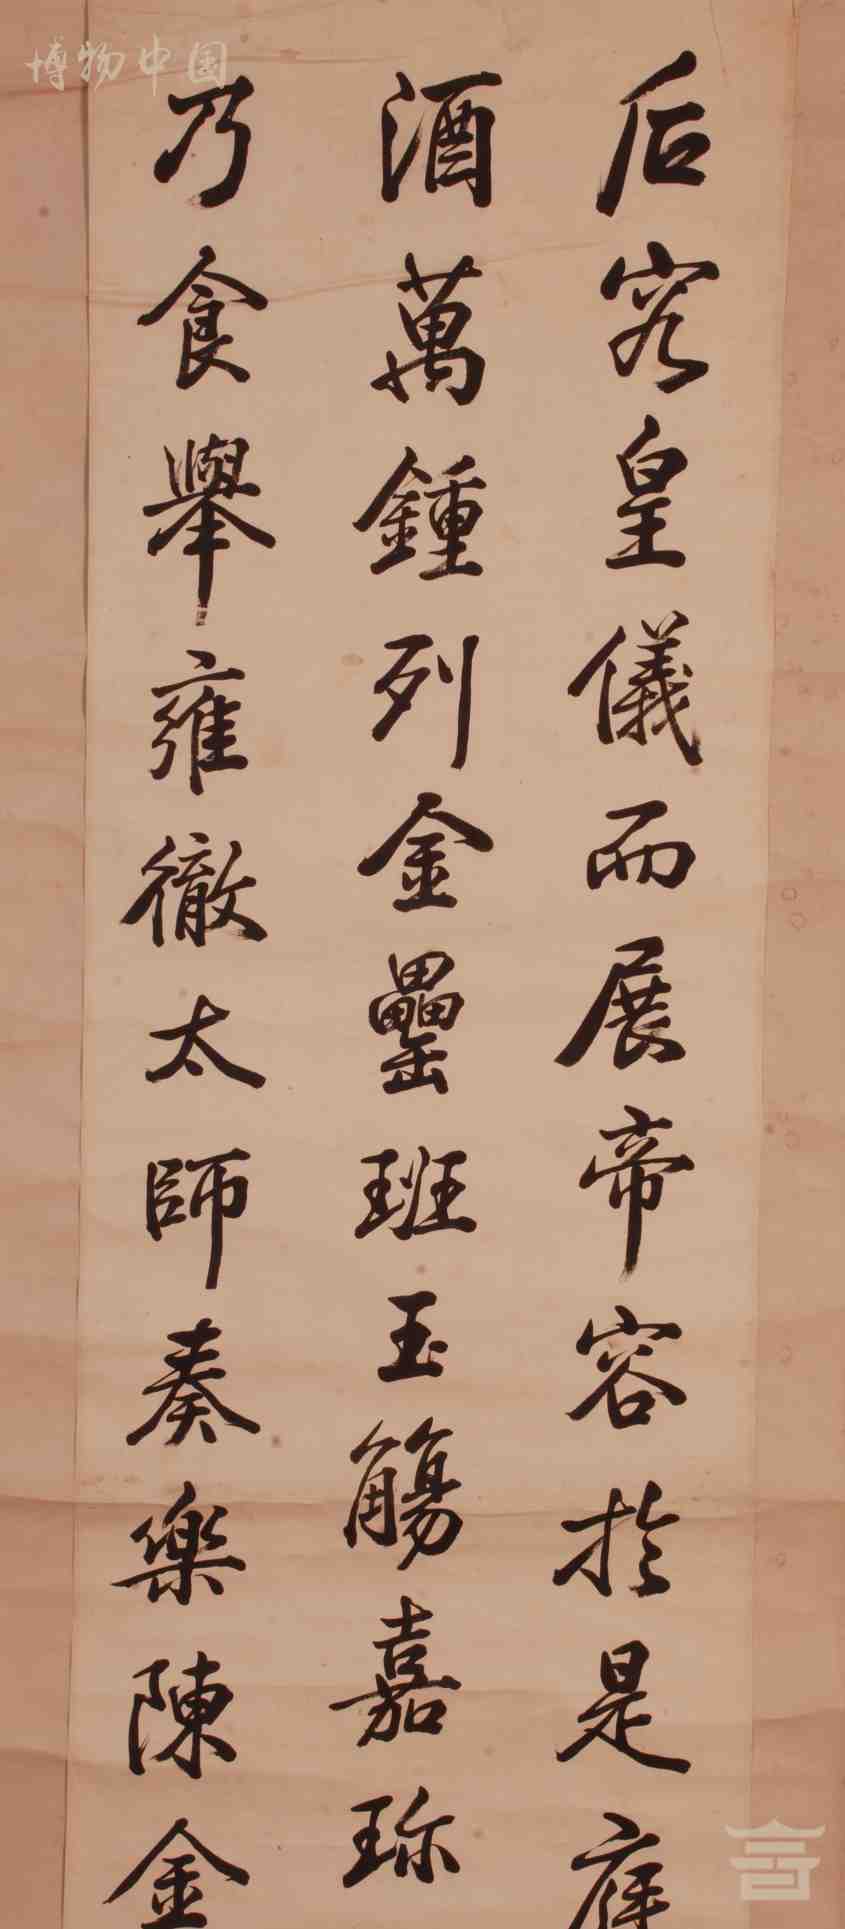 博物中国
后究皇儀而展帝容於是庭
酒萬鍾列金罍班玉觴嘉珎
乃食舉雍徹太師奏樂陳金